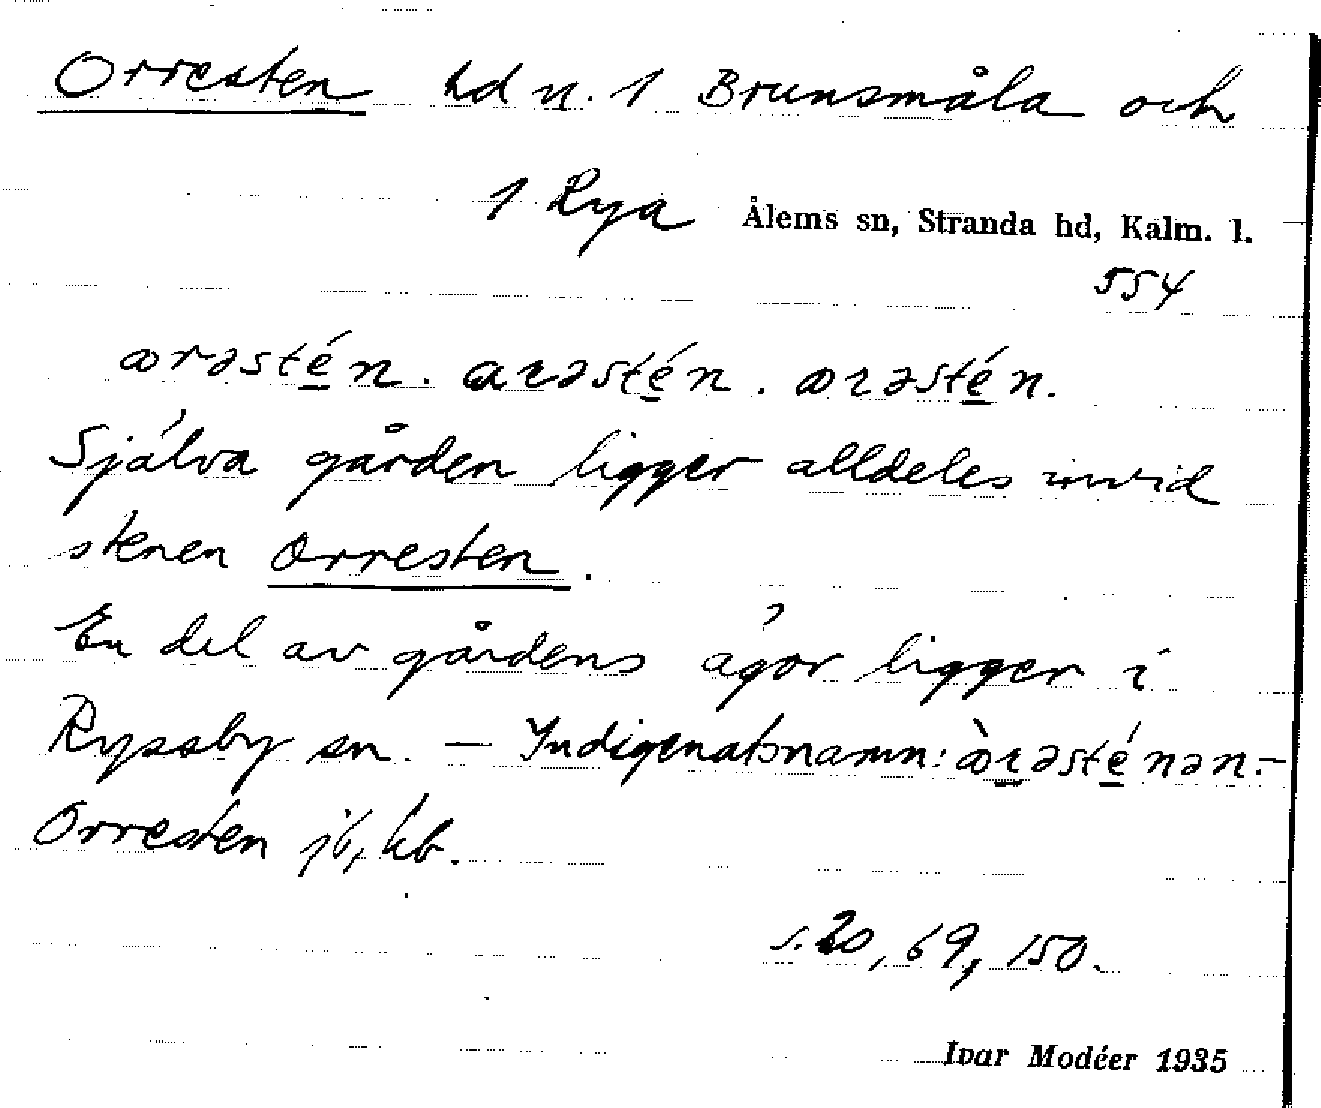 Orresten hd n. 1 Brunsmåla och
1 Rya Ålems sn, Stranda hd, Kalm. l.
554
ɷrəstén. ɑrəstén. ɷrəstén.
Själva gården ligger alldeles invid
stenen Orresten.
En del av gårdens ägor ligger i
Ryssby sn. — Indigenatsnamn: ɷ̀rəsténən. –
Orresten jb, kb.
s. 20, 69, 150.
Ivar Modéer 1935